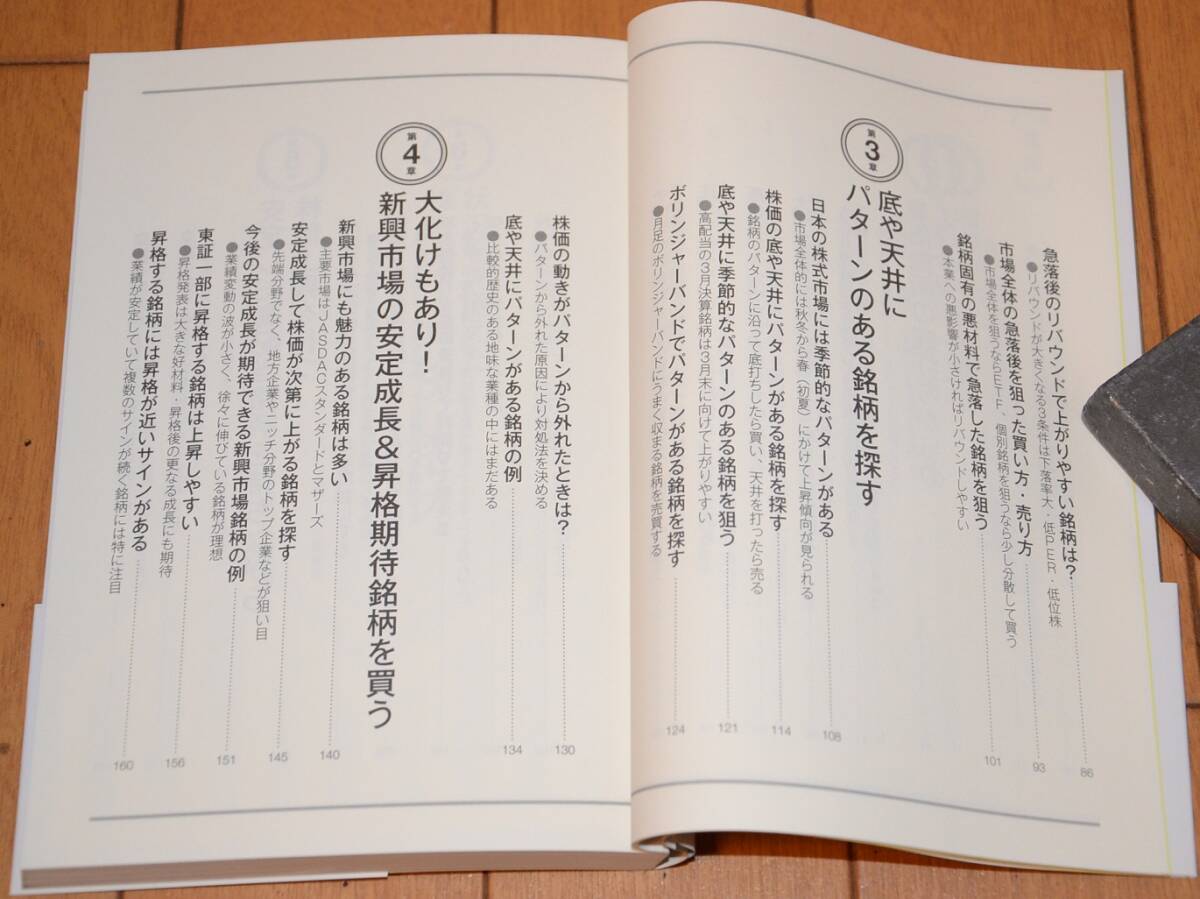 急落後のリバウンドで上がりやすい銘柄は? 86
●リバウンドが大きくなる3条件は下落率大・低PER・低位株
市場全体の急落後を狙った買い方・売り方 93
●市場全体を狙うならETF、個別銘柄を狙うなら少し分散して買う
銘柄固有の悪材料で急落した銘柄を狙う 101
●本業への悪影響が小さければリバウンドしやすい
第3章
底や天井に
パターンのある銘柄を探す
日本の株式市場には季節的なパターンがある 108
●市場全体的には秋冬から春(初夏)にかけて上昇傾向が見られる
株価の底や天井にパターンがある銘柄を探す 114
●銘柄のパターンに沿って底打ちしたら買い、天井を打ったら売る
底や天井に季節的なパターンのある銘柄を狙う 121
●高配当の3月決算銘柄は3月末に向けて上がりやすい
ボリンジャーバンドでパターンがある銘柄を探す 124
●月足のボリンジャーバンドにうまく収まる銘柄を売買する
株価の動きがパターンから外れたときは? 130
●パターンから外れた原因により対処法を決める
底や天井にパターンがある銘柄の例 134
●比較的歴史のある地味な業種の中にはまだある
第4章
大化けもあり!
新興市場の安定成長&昇格期待銘柄を買う
新興市場にも魅力のある銘柄は多い 140
●主要市場はJASDACスタンダードとマザーズ
安定成長して株価が次第に上がる銘柄を探す 145
●先端分野でなく、地方企業やニッチ分野のトップ企業などが狙い目
今後の安定成長が期待できる新興市場銘柄の例 151
●業績変動の波が小さく、徐々に伸びている銘柄が理想
東証一部に昇格する銘柄は上昇しやすい 156
●昇格発表は大きな好材料・昇格後の更なる成長にも期待
昇格する銘柄には昇格が近いサインがある 160
●業績が安定していて複数のサインが続く銘柄には特に注目